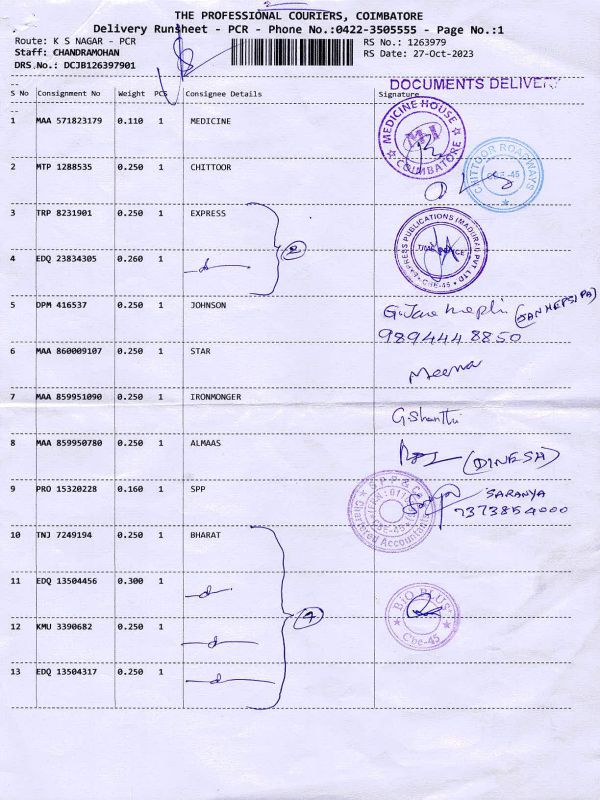 THE PROFESSIONAL COURIERS, COIMBATORE
Delivery Runsheet - PCR - Phone No.:0422-3505555 - Page No.:1
Route: K S NAGAR - PCR
RS No.: 1263979
Staff: CHANDRAMOHAN
RS Date: 27-Oct-2023
DRS No.: DCJB126397901
DOCUMENTS DELIVERY
S No Consignment No Weight PCS Consignee Details Signature
1 MAA 571823179 0.110 1 MEDICINE
MEDICINE HOUSE
COIMBATORE
2 MTP 1288535 0.250 1 CHITTOOR
CHITTOOR ROADWAYS
CBE-45
3 TRP 8231901 0.250 1 EXPRESS
2
EXPRESS PUBLICATIONS (MADURAI) PVT LTD
CBE-45
4 EDQ 23834305 0.260 1
5 DPM 416537 0.250 1 JOHNSON
(JANHEPSIPA)
9894448850
6 MAA 860009107 0.250 1 STAR
Meena
7 MAA 859951090 0.250 1 IRONMONGER
G.Shanthi
8 MAA 859950780 0.250 1 ALMAAS
(DINESA)
9 PRO 15320228 0.160 1 SPP
SPP & Co
Chartered Accountants
CBE-45
SARANYA
7373854000
10 TNJ 7249194 0.250 1 BHARAT
11 EDQ 13504456 0.300 1 d
BIO PLUS
Cbe-45
12 KMU 3390682 0.250 1 d
13 EDQ 13504317 0.250 1 d